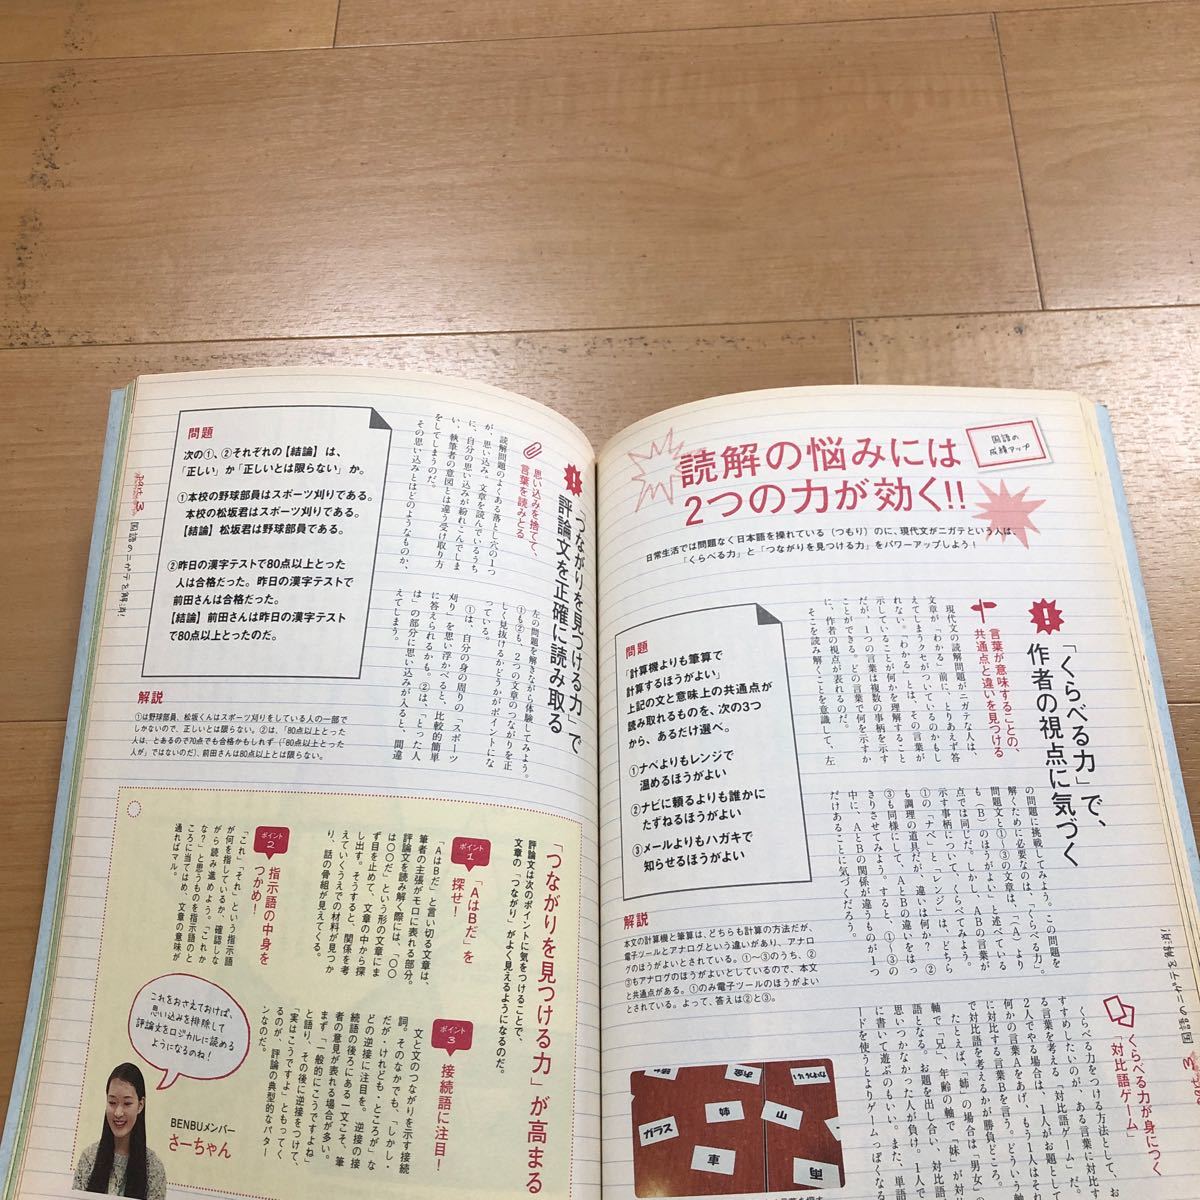 国語の
成績アップ
読解の悩みには
2つの力が効く!!
日常生活では問題なく日本語を操れている(つもり)のに、現代文がニガテという人は、
「くらべる力」と「つながりを見つける力」をパワーアップしよう！
「くらべる力」で、
作者の視点に気づく
言葉が意味することの、
共通点と違いを見つける
現代文の読解問題がニガテな人は、
文章が「わかる」前に、とりあえず答
えてしまうクセがついているのかもし
れない。「わかる」とは、その言葉が
示していることが何かを理解すること
だが、1つの言葉は複数の事柄を示す
ことができる。どの言葉で何を示すか
に、作者の視点が表れるのだ。
そこを読み解くことを意識して、左
の問題に挑戦してみよう。この問題を
解くために必要なのは、「くらべる力」。
問題文と①〜③の文章は、「(A)より
も(B)のほうがよい」と述べている
点では同じだ。しかし、ABの言葉が
示す事柄について、くらべてみよう。
①の「ナベ」と「レンジ」は、どちら
も調理の道具だが、違いは何か？②
③も同様にして、AとBの違いをはっ
きりさせてみよう。すると、①〜③の
中に、AとBの関係が違うものが1つ
だけあることに気づくだろう。
問題
「計算機よりも筆算で
計算するほうがよい」
上記の文と意味上の共通点が
読み取れるものを、次の3つ
から、あるだけ選べ。
①ナベよりもレンジで
温めるほうがよい
②ナビに頼るよりも誰かに
たずねるほうがよい
③メールよりもハガキで
知らせるほうがよい
解説
本文の計算機と筆算は、どちらも計算の方法だが、
電子ツールとアナログという違いがあり、アナロ
グのほうがよいとされている。①〜③のうち、②
③もアナログのほうがよいとしているので、本文
と共通点がある。①のみ電子ツールのほうがよい
とされている。よって、答えは②と③。
くらべる力が身につく
「対比語ゲーム」
くらべる力をつける方法として、お
すすめしたいのが、ある言葉に対比す
る言葉を考える「対比語ゲーム」だ。
2人でやる場合は、1人がお題として
何かの言葉Aをあげ、もう1人がそれ
に対比する言葉Bを言う。どういう
で対比語を考えるかが勝負どころ。
たとえば、「姉」の場合は「男女」
軸で「兄」、年齢の軸で「妹」が対
語となる。お題を出し合い、対比語
思いつかなかった人が負け。1人で
に書いて遊ぶのもいい。また、単語
ードを使うとよりゲームっぽくな
お金
かわいい
姉
山
ガラス
車
国語のニガテを解消！
「つながりを見つける力」で
評論文を正確に読み取る
思い込みを捨てて、
言葉を読みとる
読解問題のよくある落とし穴の1つ
が、思い込み。文章を読んでいるうち
に、自分の思い込みが紛れこんでしま
い、執筆者の意図とは違う受け取り方
をしてしまうのだ。
その思い込みとはどのようなものか、
左の問題を解きながら体験してみよう。
①も②も、2つの文章のつながりを正
しく見抜けるかどうかがポイントにな
っている。
①は、自分の身の周りの「スポーツ
刈り」を思い浮かべると、比較的簡単
に答えられるかも。②は、「とった人
は」の部分に思い込みが入ると、間違
えてしまう。
問題
次の①、②それぞれの【結論】は、
「正しい」か「正しいとは限らない」か。
①本校の野球部員はスポーツ刈りである。
本校の松坂君はスポーツ刈りである。
【結論】松坂君は野球部員である。
②昨日の漢字テストで80点以上とった
人は合格だった。昨日の漢字テストで
前田さんは合格だった。
【結論】前田さんは昨日の漢字テスト
で80点以上とったのだ。
解説
①は野球部員、松坂くんはスポーツ刈りをしている人の一部で
しかないので、正しいとは限らない。②は、「80点以上とった
人は」とあるので70点でも合格かもしれず(「80点以上とった
人が」ではないのだ)、前田さんは80点以上とは限らない。
「つながりを見つける力」が高まる
評論文は次のポイントに気をつけることで、
文章の「つながり」がよく見えるようになるのだ。
ポイント
1
「AはBだ」を
探せ！
「AはBだ」と言い切る文章は、
筆者の主張がモロに表れる部分。
評論文を読み解く際には、「〇〇
は〇〇だ」という形の文章にま
ず目を止めて、文章の中から探
し出す。そうすると、関係を考
えていくうえでの材料が見つか
り、話の骨組が見えてくる。
ポイント
2
指示語の中身を
つかめ！
「これ」「それ」という指示語
が何を指しているか、確認しな
がら読み進めよう。「これか
な？」と思うものを指示語のと
ころに当てはめ、文章の意味が
通ればマル。
ポイント
3
接続語に注目！
文と文のつながりを示す接続
詞。そのなかでも、「しかし・
だが・けれども・ところが」な
どの逆接に注目を。逆接の接
続語の後ろにある一文こそ、筆
者の意見が表れる場合が多い。
まず「一般的にこうですよね」
と語り、その後に逆接をつけて、
「実はこうですよ」ともってく
るのが、評論の典型的なパター
ンなのだ。
これをおさえておけば、
思い込みを排除して
評論文をロジカルに読める
ようになるのね！
BENBUメンバー
さーちゃん
国語のニガテを解消！